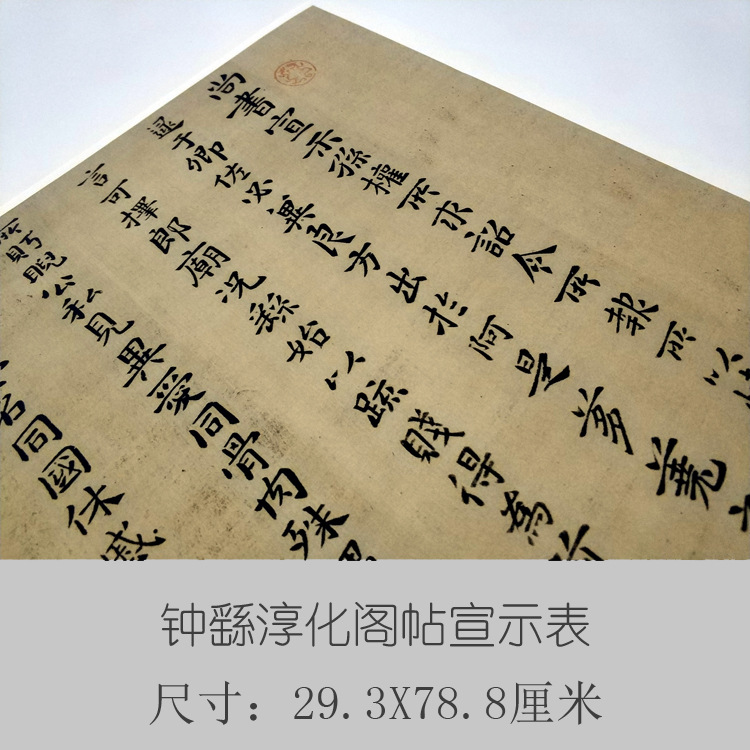 尚書宣示孫權所求詔令所報所以
逮于卿佐必冀良方出於阿是芻蕘
言可擇郎廟況繇始以疏賤得為
睨公私見異愛同骨肉殊
同國休慼
钟繇淳化阁帖宣示表
尺寸：29.3X78.8厘米